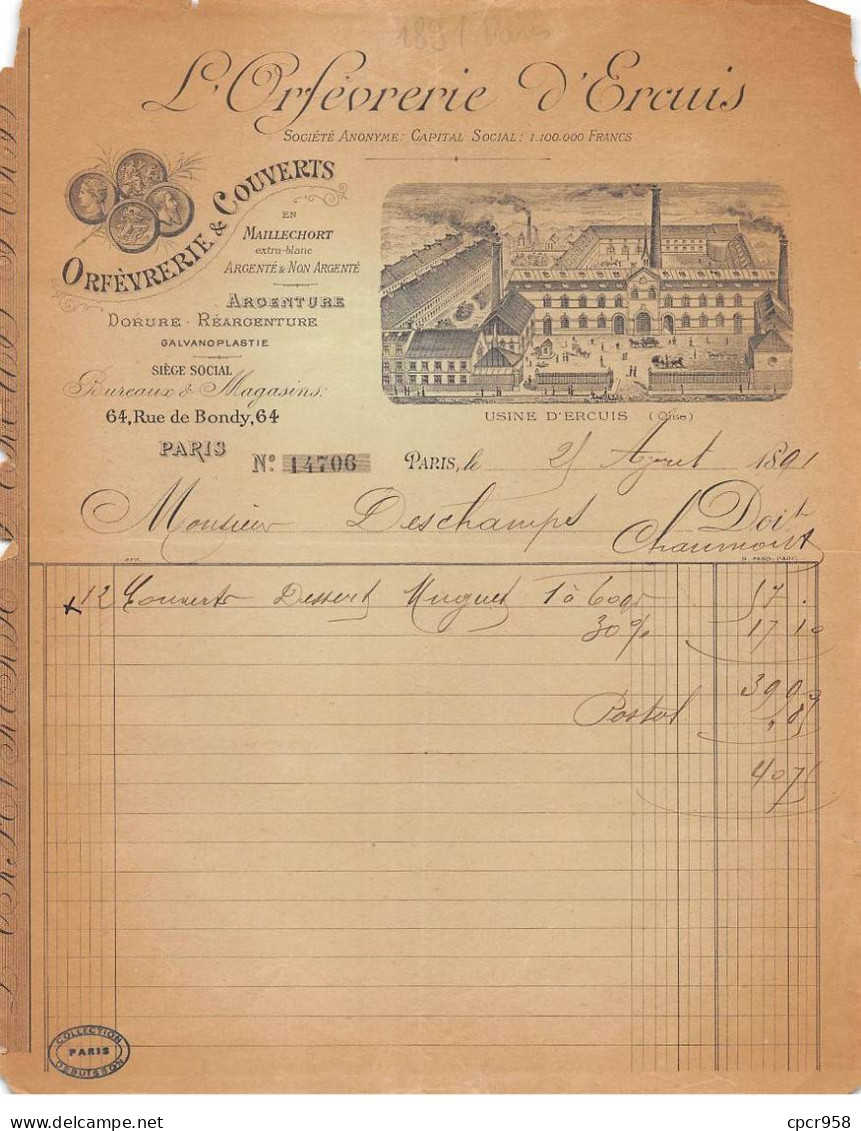 1891 Paris
L'Orfévrerie d'Ercuis
SOCIÉTÉ ANONYME: CAPITAL SOCIAL: 1.100.000 FRANCS
ORFÉVRERIE & COUVERTS
EN
MAILLECHORT
extra-blanc
ARGENTÉ & NON ARGENTÉ
ARGENTURE
DORURE - RÉARGENTURE
GALVANOPLASTIE
SIÈGE SOCIAL
Bureaux & Magasins:
64, Rue de Bondy, 64
PARIS
USINE D'ERCUIS (Oise)
No. 14706 PARIS, le 25 Aout 1891
Monsieur Deschamps Doit
Chaumont
12 Couverts Dessert Muguet 1 à 60gr 57 .
30% 17 10
39 90
Postal , 85
40 75
COLLECTION
PARIS
DEBUISSON
cpcr958